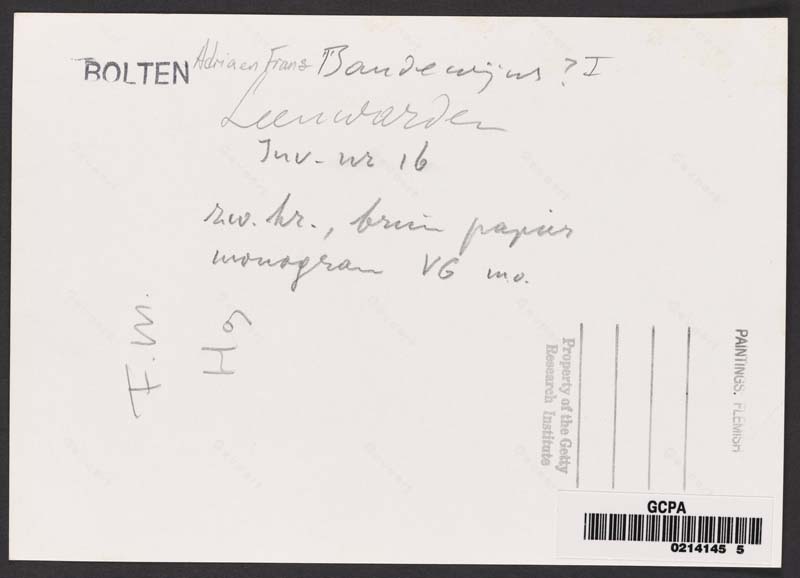 BOLTEN Adriaen Frans Boudewijns ? I
Leeuwarden
Inv- nr 16
zw. kr., bruin papier
monogram VG m.o.
F.W.
Hg
Property of the Getty
Research Institute
PAINTINGS. FLEMISH
GCPA
0214145 5